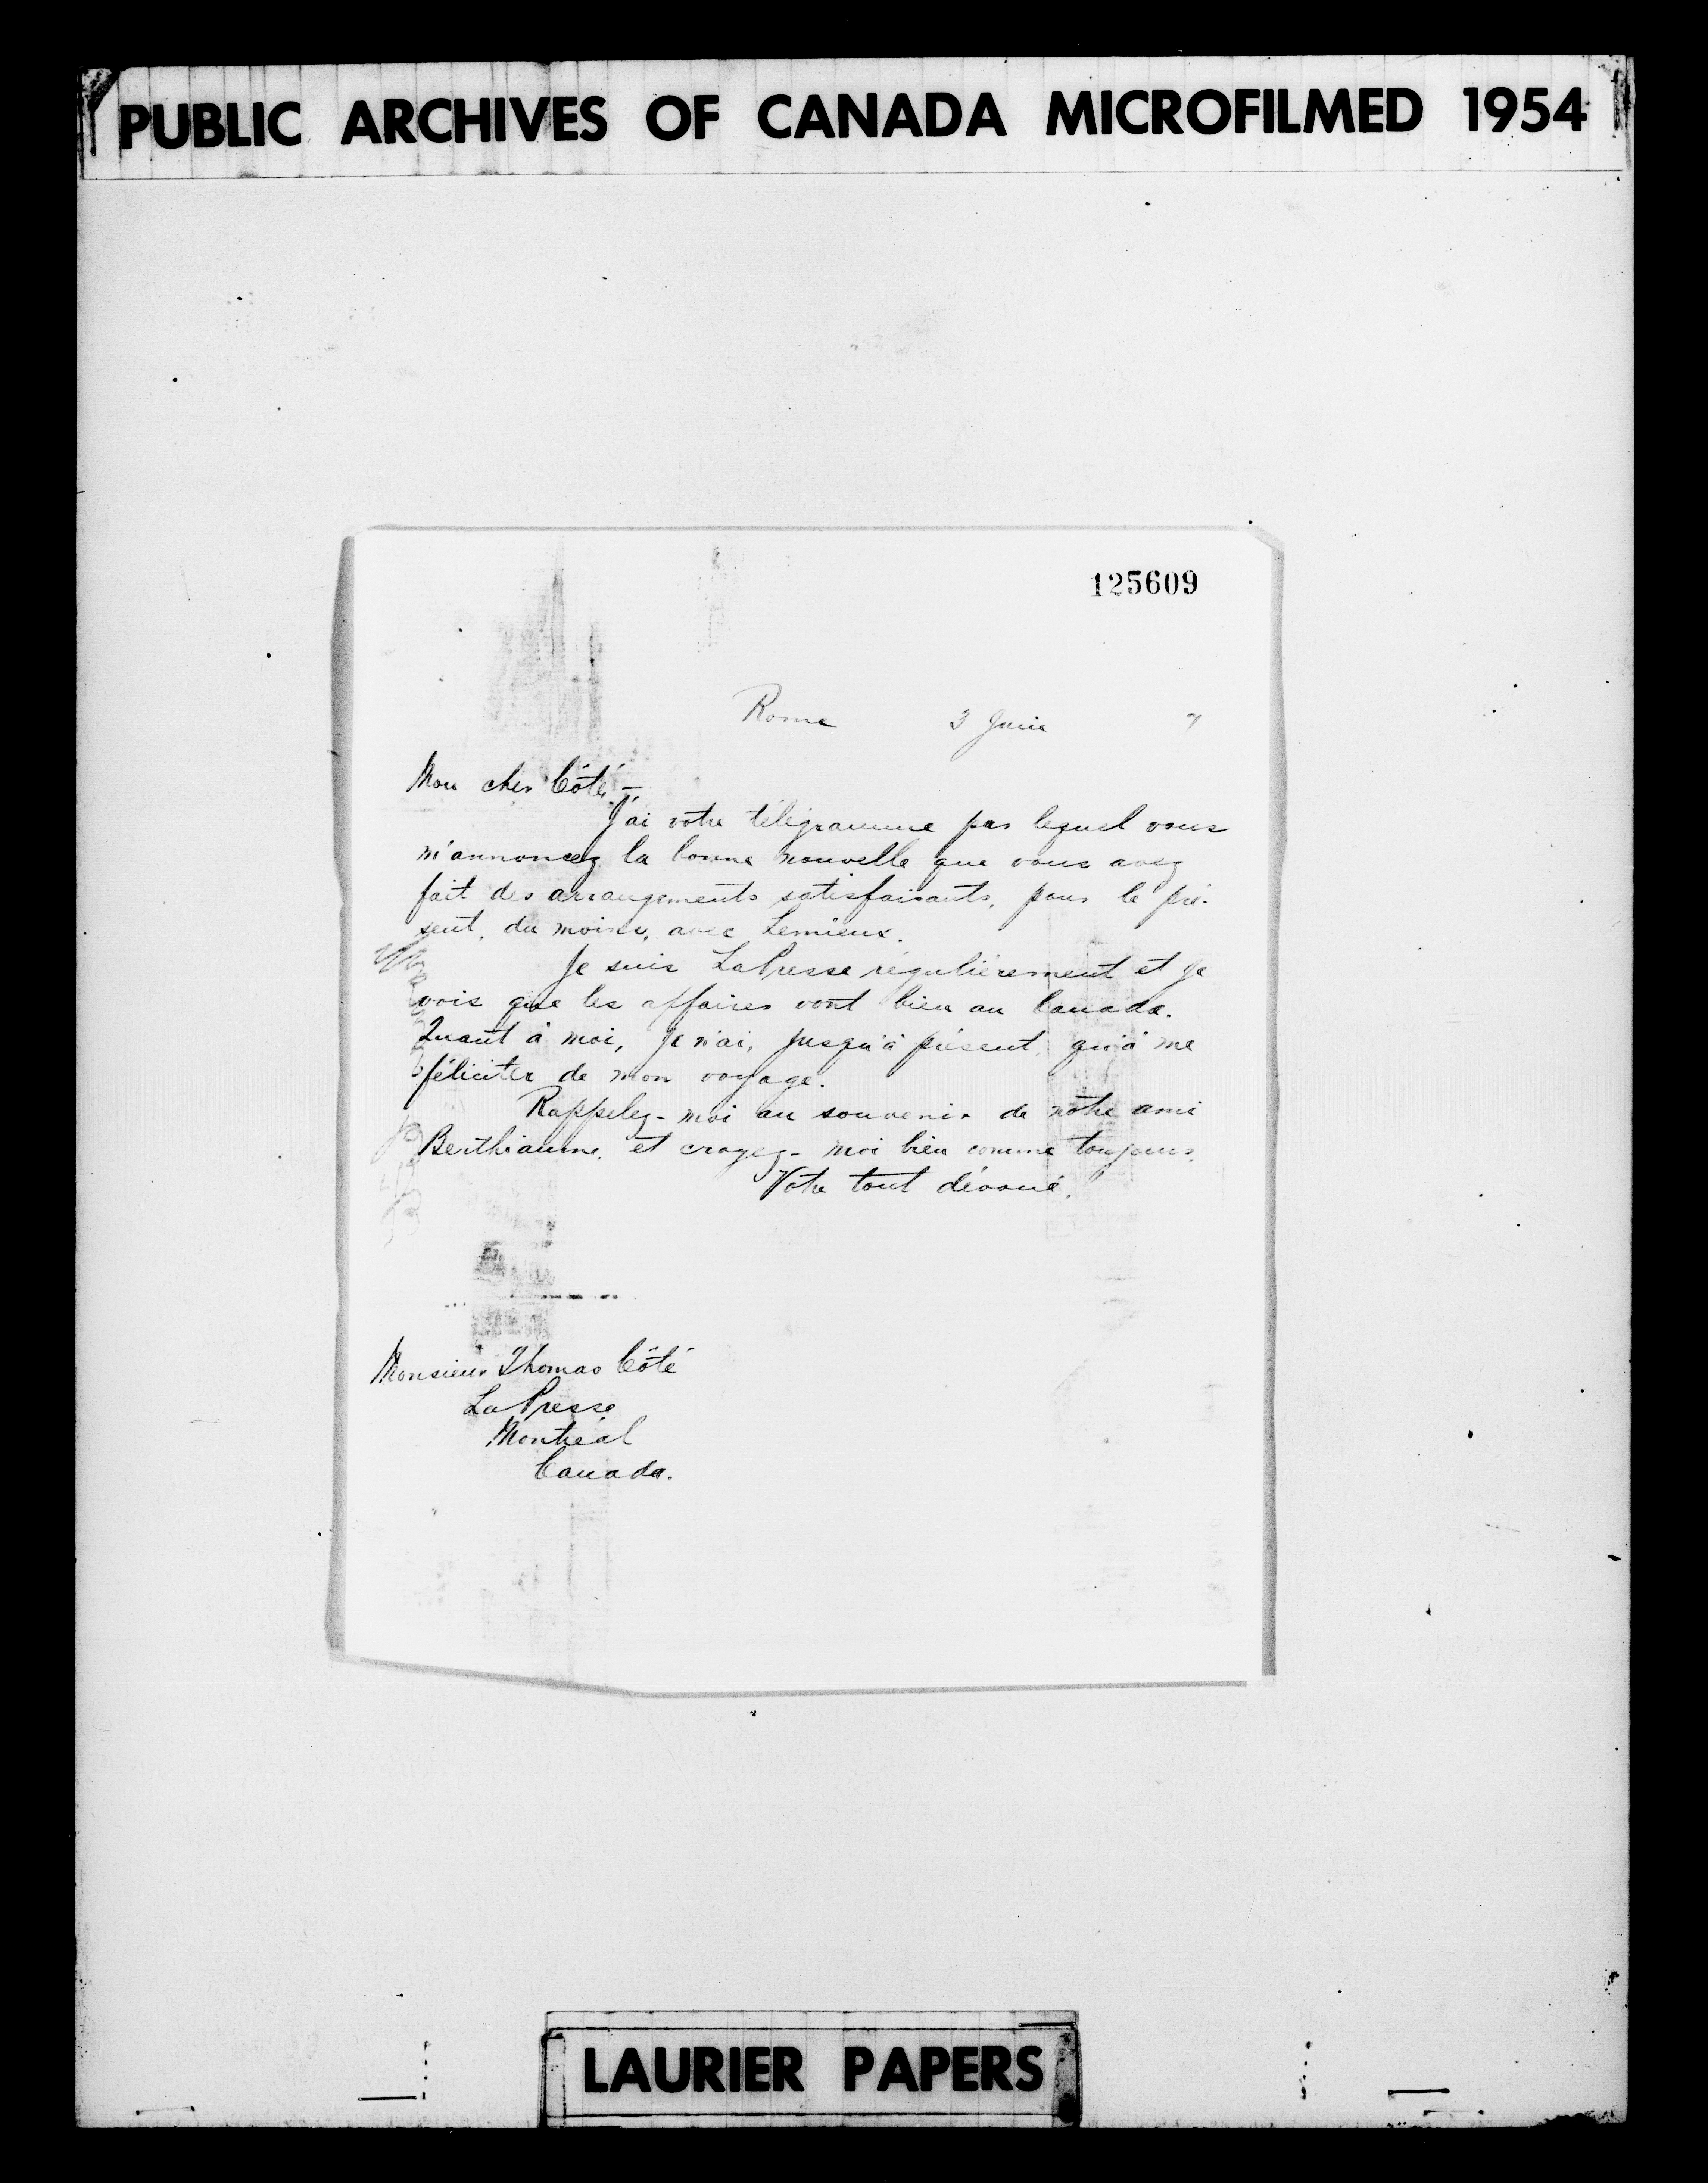 PUBLIC ARCHIVES OF CANADA MICROFILMED 1954
125609
Rome 3 Juin 7
Mon cher Côté,—
J'ai votre télégramme par lequel vous
m'annoncez la bonne nouvelle que vous avez
fait des arrangements satisfaisants, pour le pré-
sent, du moins, avec Lemieux.
Je suis La Presse régulièrement et je
vois que les affaires vont bien au Canada.
Quant à moi, je n'ai, jusqu'à présent, qu'à me
féliciter de mon voyage.
Rappelez-moi au souvenir de notre ami
Berthiaume, et croyez-moi bien comme toujours,
Votre tout dévoué,
Monsieur Thomas Côté
La Presse
Montréal
Canada.
LAURIER PAPERS